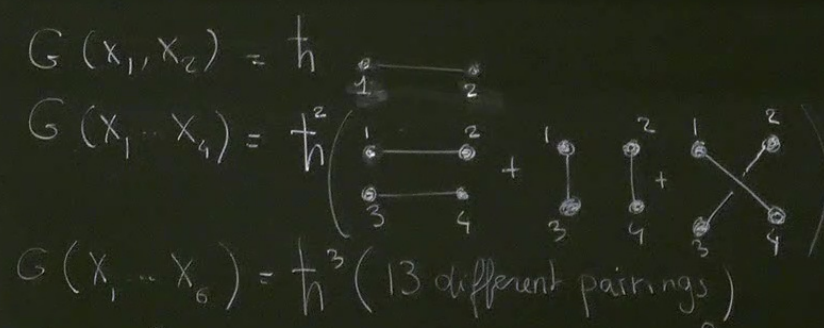 G(x₁, x₂) = ħ 1 2
G(x₁ ... x₄) = ħ² ( 1 2 3 4 + 1 2 3 4 + 1 2 3 4 )
G(x₁ ... x₆) = ħ³ (13 different pairings)